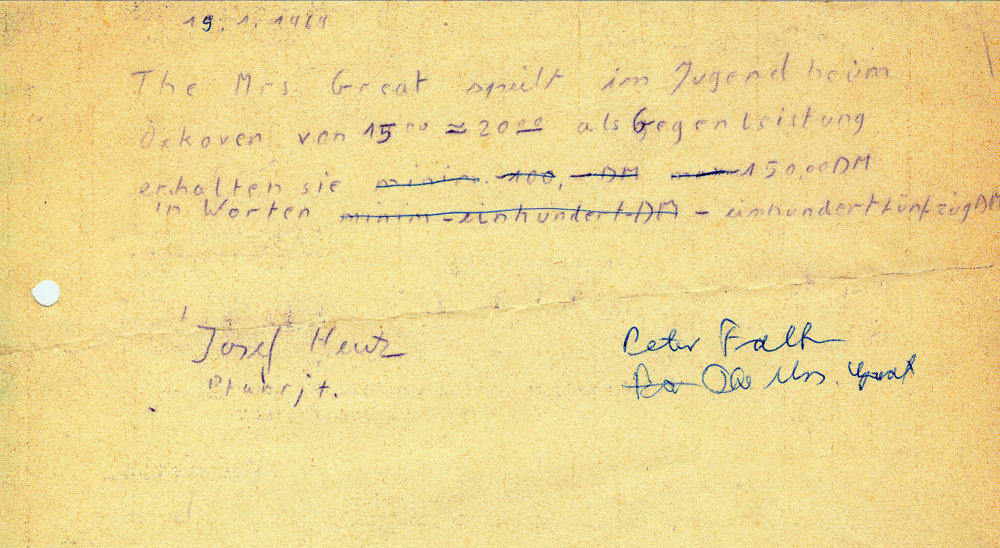 The Mrs Great spielt im Jugendheim
Dekoven von 15⁰⁰ – 20⁰⁰ als Gegenleistung
erhalten sie minim. 100,- DM max 150,00DM
in Worten minim-einhundert-DM - einhundertfünfzigDM
Josef
Peter Falk
Mrs. Great